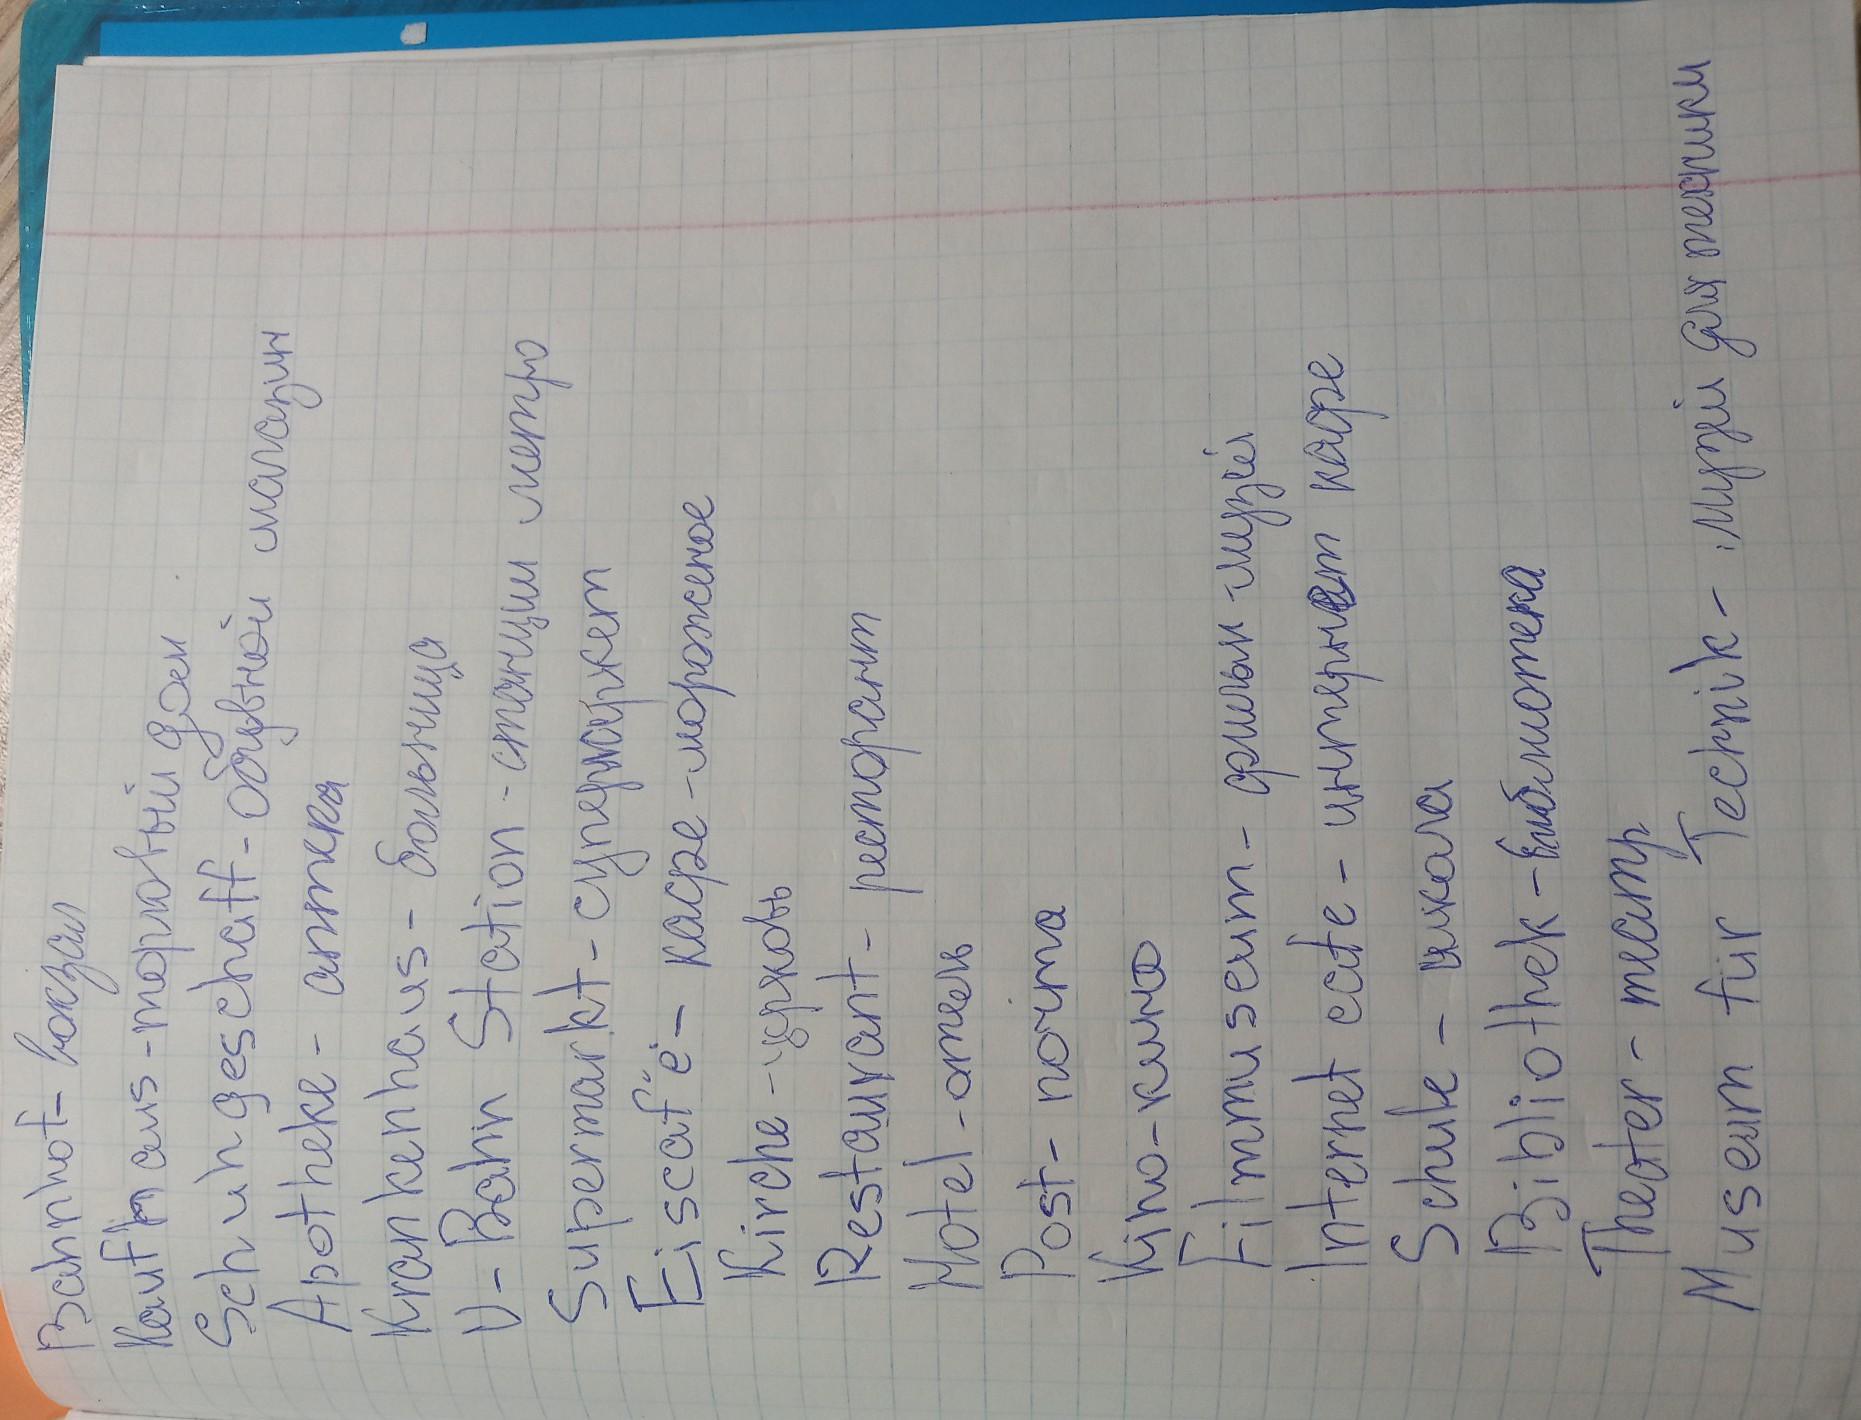 Bahnhof - вокзал
Kaufhaus - торговый дом
Schuhgeschäft - обувной магазин
Apotheke - аптека
Krankenhaus - больница
U-Bahn Station - станции метро
Supermarkt - супермаркет
Eiscafé - кафе-мороженое
Kirche - церковь
Restaurant - ресторант
Hotel - отель
Post - почта
Kino - кино
Filmmuseum - фильм музей
Internet cafe - интернет кафе
Schule - школа
Bibliothek - библиотека
Theater - театр
Museum für Technik - музей для техники